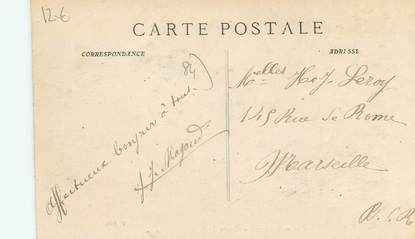 12 €
CARTE POSTALE
CORRESPONDANCE
ADRESSE
84
Affectueux bonjour à tous.
Melles H & J. Leroy
145 Rue de Rome
Marseille